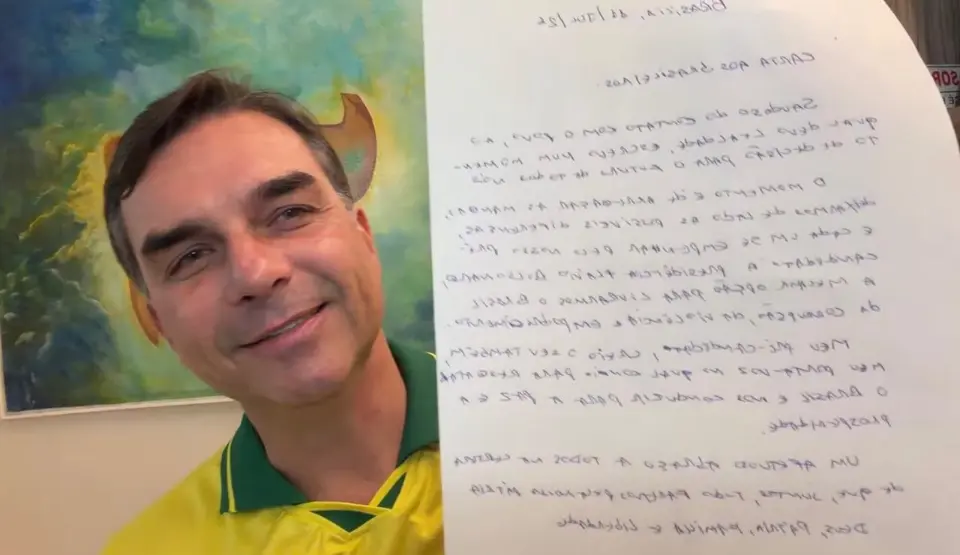 BRASÍLIA, /JUL/26
CARTA AOS BRASILEIROS
SAUDOSO DO CONTATO COM O POVO, AO
QUAL DEVO LEALDADE, ESCREVO NUM MOMEN-
TO DE DECISÃO PARA O FUTURO DE TODOS NÓS
O MOMENTO É DE ARREGAÇAR AS MANGAS,
DEIXARMOS DE LADO AS POSSÍVEIS DIFERENÇAS,
E CADA UM SE EMPENHAR PELO NOSSO PRÉ-
CANDIDATO À PRESIDÊNCIA FLÁVIO BOLSONARO,
A MELHOR OPÇÃO PARA LIVRARMOS O BRASIL
DA CORRUPÇÃO, DA VIOLÊNCIA E EMPOBRECIMENTO.
MEU PRÉ-CANDIDATO, CREIO O SEU TAMBÉM,
MEU PORTA-VOZ NO QUAL CONFIO PARA RESGATAR
O BRASIL E NOS CONDUZIR PARA A PAZ E A
PROSPERIDADE.
UM AFETUOSO ABRAÇO A TODOS NA CERTEZA
DE QUE, JUNTOS, TUDO FAREMOS PELA
DEUS, PÁTRIA, FAMÍLIA E LIBERDADE